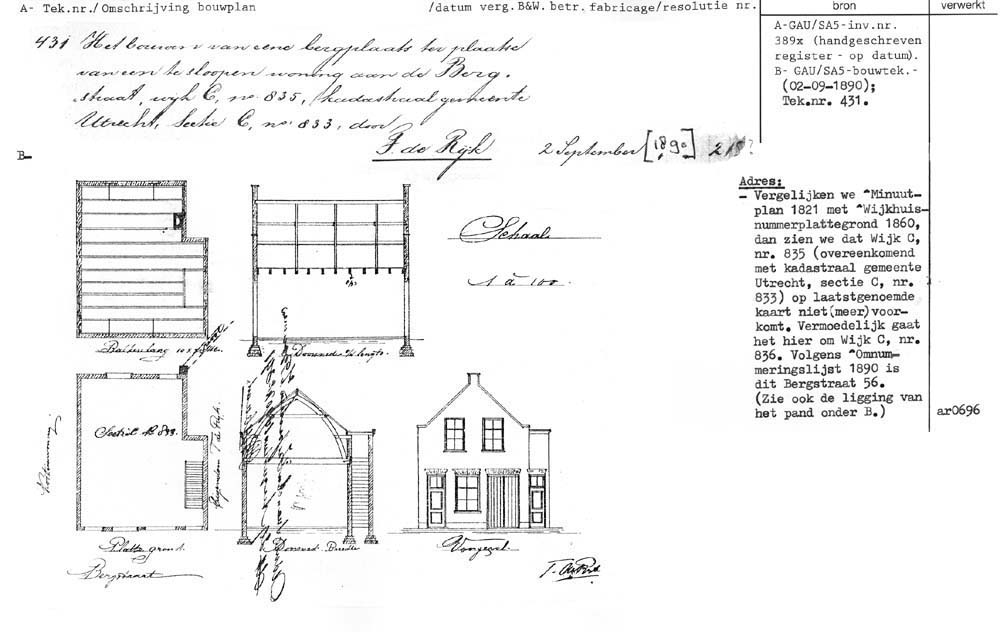 A- Tek.nr./ Omschrijving bouwplan /datum verg.B&W. betr. fabricage/resolutie nr. bron verwerkt
431 Het bouwen van eene bergplaats ter plaatse
van een te sloopen woning aan de Berg-
straat, wijk C, no 835, kadastraal gemeente
Utrecht, Sectie C, no 833, door
F. de Rijk 2 September [1890]
A-GAU/SA5-inv.nr.
389x (handgeschreven
register - op datum).
B- GAU/SA5-bouwtek.-
(02-09-1890);
Tek.nr. 431.
B-
Adres:
- Vergelijken we ^Minuut-
plan 1821 met ^Wijkhuis-
nummerplattegrond 1860,
dan zien we dat Wijk C,
nr. 835 (overeenkomend
met kadastraal gemeente
Utrecht, sectie C, nr.
833) op laatstgenoemde
kaart niet(meer)voor-
komt. Vermoedelijk gaat
het hier om Wijk C, nr.
836. Volgens ^Omnum-
meringslijst 1890 is
dit Bergstraat 56.
(Zie ook de ligging van
het pand onder B.)
ar0696
Schaal
1 à 100.
Balkenlaag
Doorsnede
Sectie C No 833.
Platte grond.
Bergstraat
Doorsned. Breedte
Voorgevel.